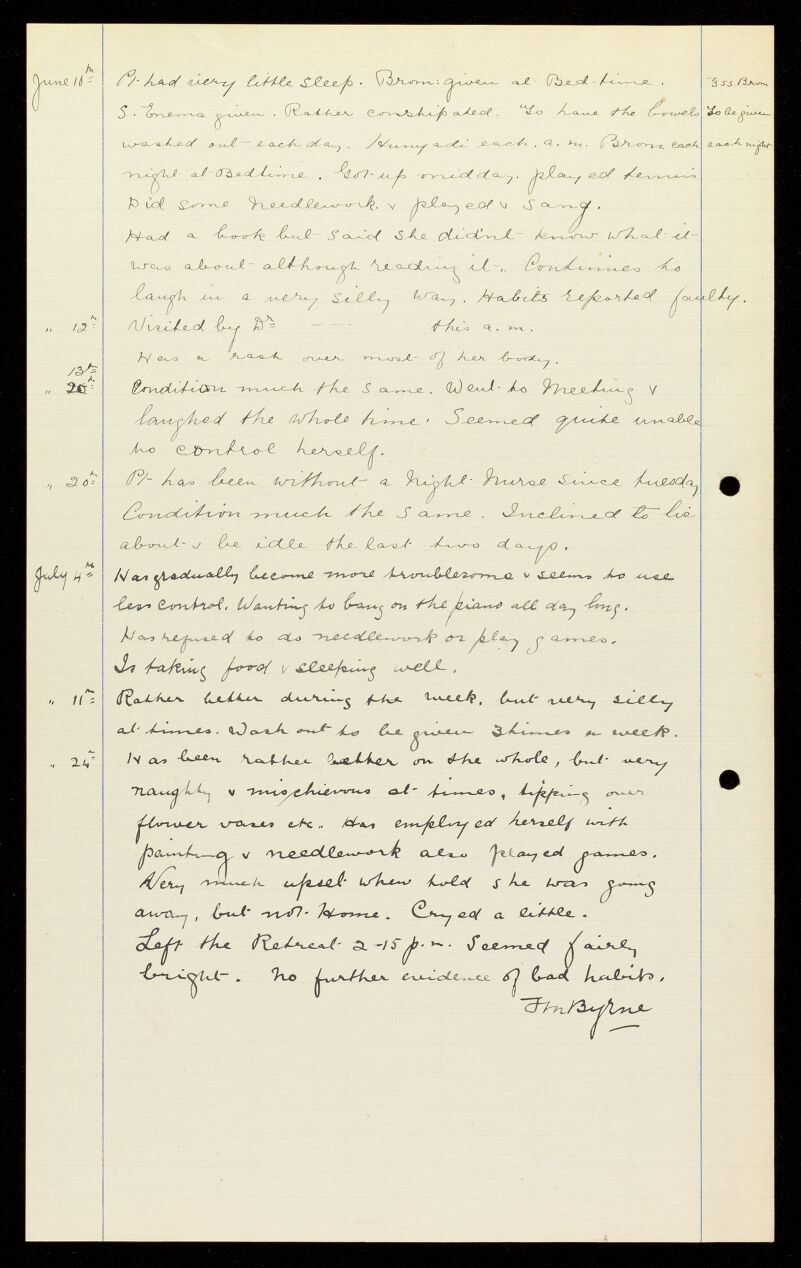 June 10th Pt had very little sleep. Brom: given at Bed-time. ʒss Brom
S. Enema given. Rather constipated. To have the bowels To be given
washed out each day. Hunyadi each. a.m. Brom each each night
night at Bedtime. Got up midday. played tennis
Did some Needlework. & played & Sang.
Had a book but Said She didn't know what it
was about although reading it. Continues to
laugh in a very Silly way. Habits reported faulty.
" 12th Visited by Dr this a.m.
Has a rash over most of her body.
13th
" Condition much the same. Went to Meeting &
laughed the whole time. Seemed quite unable
to control herself.
" 20th Pt has been without a Night Nurse since tuesday
Condition much the same. Inclined to lie
about & be idle the last two days.
July 4th Has gradually become more troublesome & seems to use
less control. Wanting to bang on the piano all day long.
Has refused to do needlework or play games.
Is taking food & sleeping well.
" 11th Rather better during the week, but very silly
at times. Wash out to be given 3 times a week.
" 24th Has been rather better on the whole, but very
naughty & mischievous at times, tipping over
flower vases etc. Has employed herself with
painting & needlework also played games.
Very much upset when told she was going
away, but not Home. Cryed a little.
Left the Retreat 2-15 p.m. Seemed fairly
bright. No further evidence of bad habits.
FMByrne